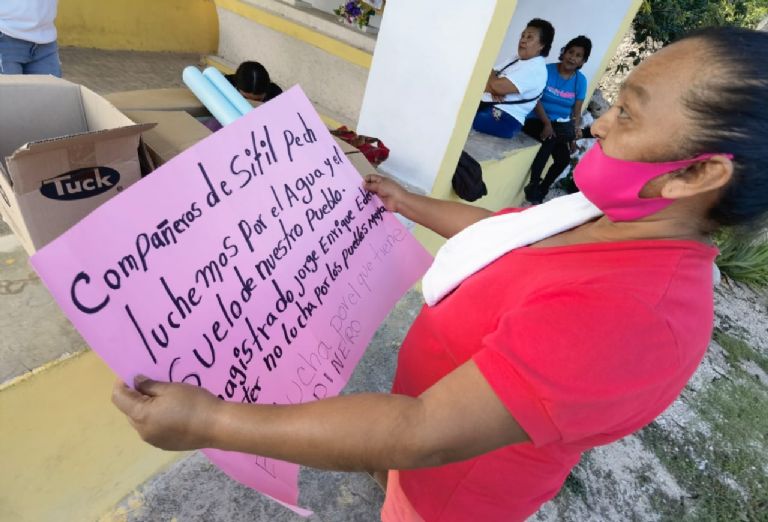 TUCK
Compañeros de Sitil Pech
luchemos Por el Agua y el
Suelo de nuestro Pueblo.
magistrado Jorge Enrique Eden
ter no lucha por los Pueblos Mayas
Lucha por el que tiene
DINERO